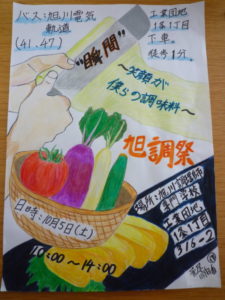 バス:旭川電気
軌道
(41.47)
工業団地
1条1丁目
下車。
徒歩1分。
"瞬間"
～笑顔が
僕らの調味料～
旭調祭
日時:10月5日(土)
10:00～14:00
場所:旭川調理師
専門学校
工業団地
1条1丁目
316-2